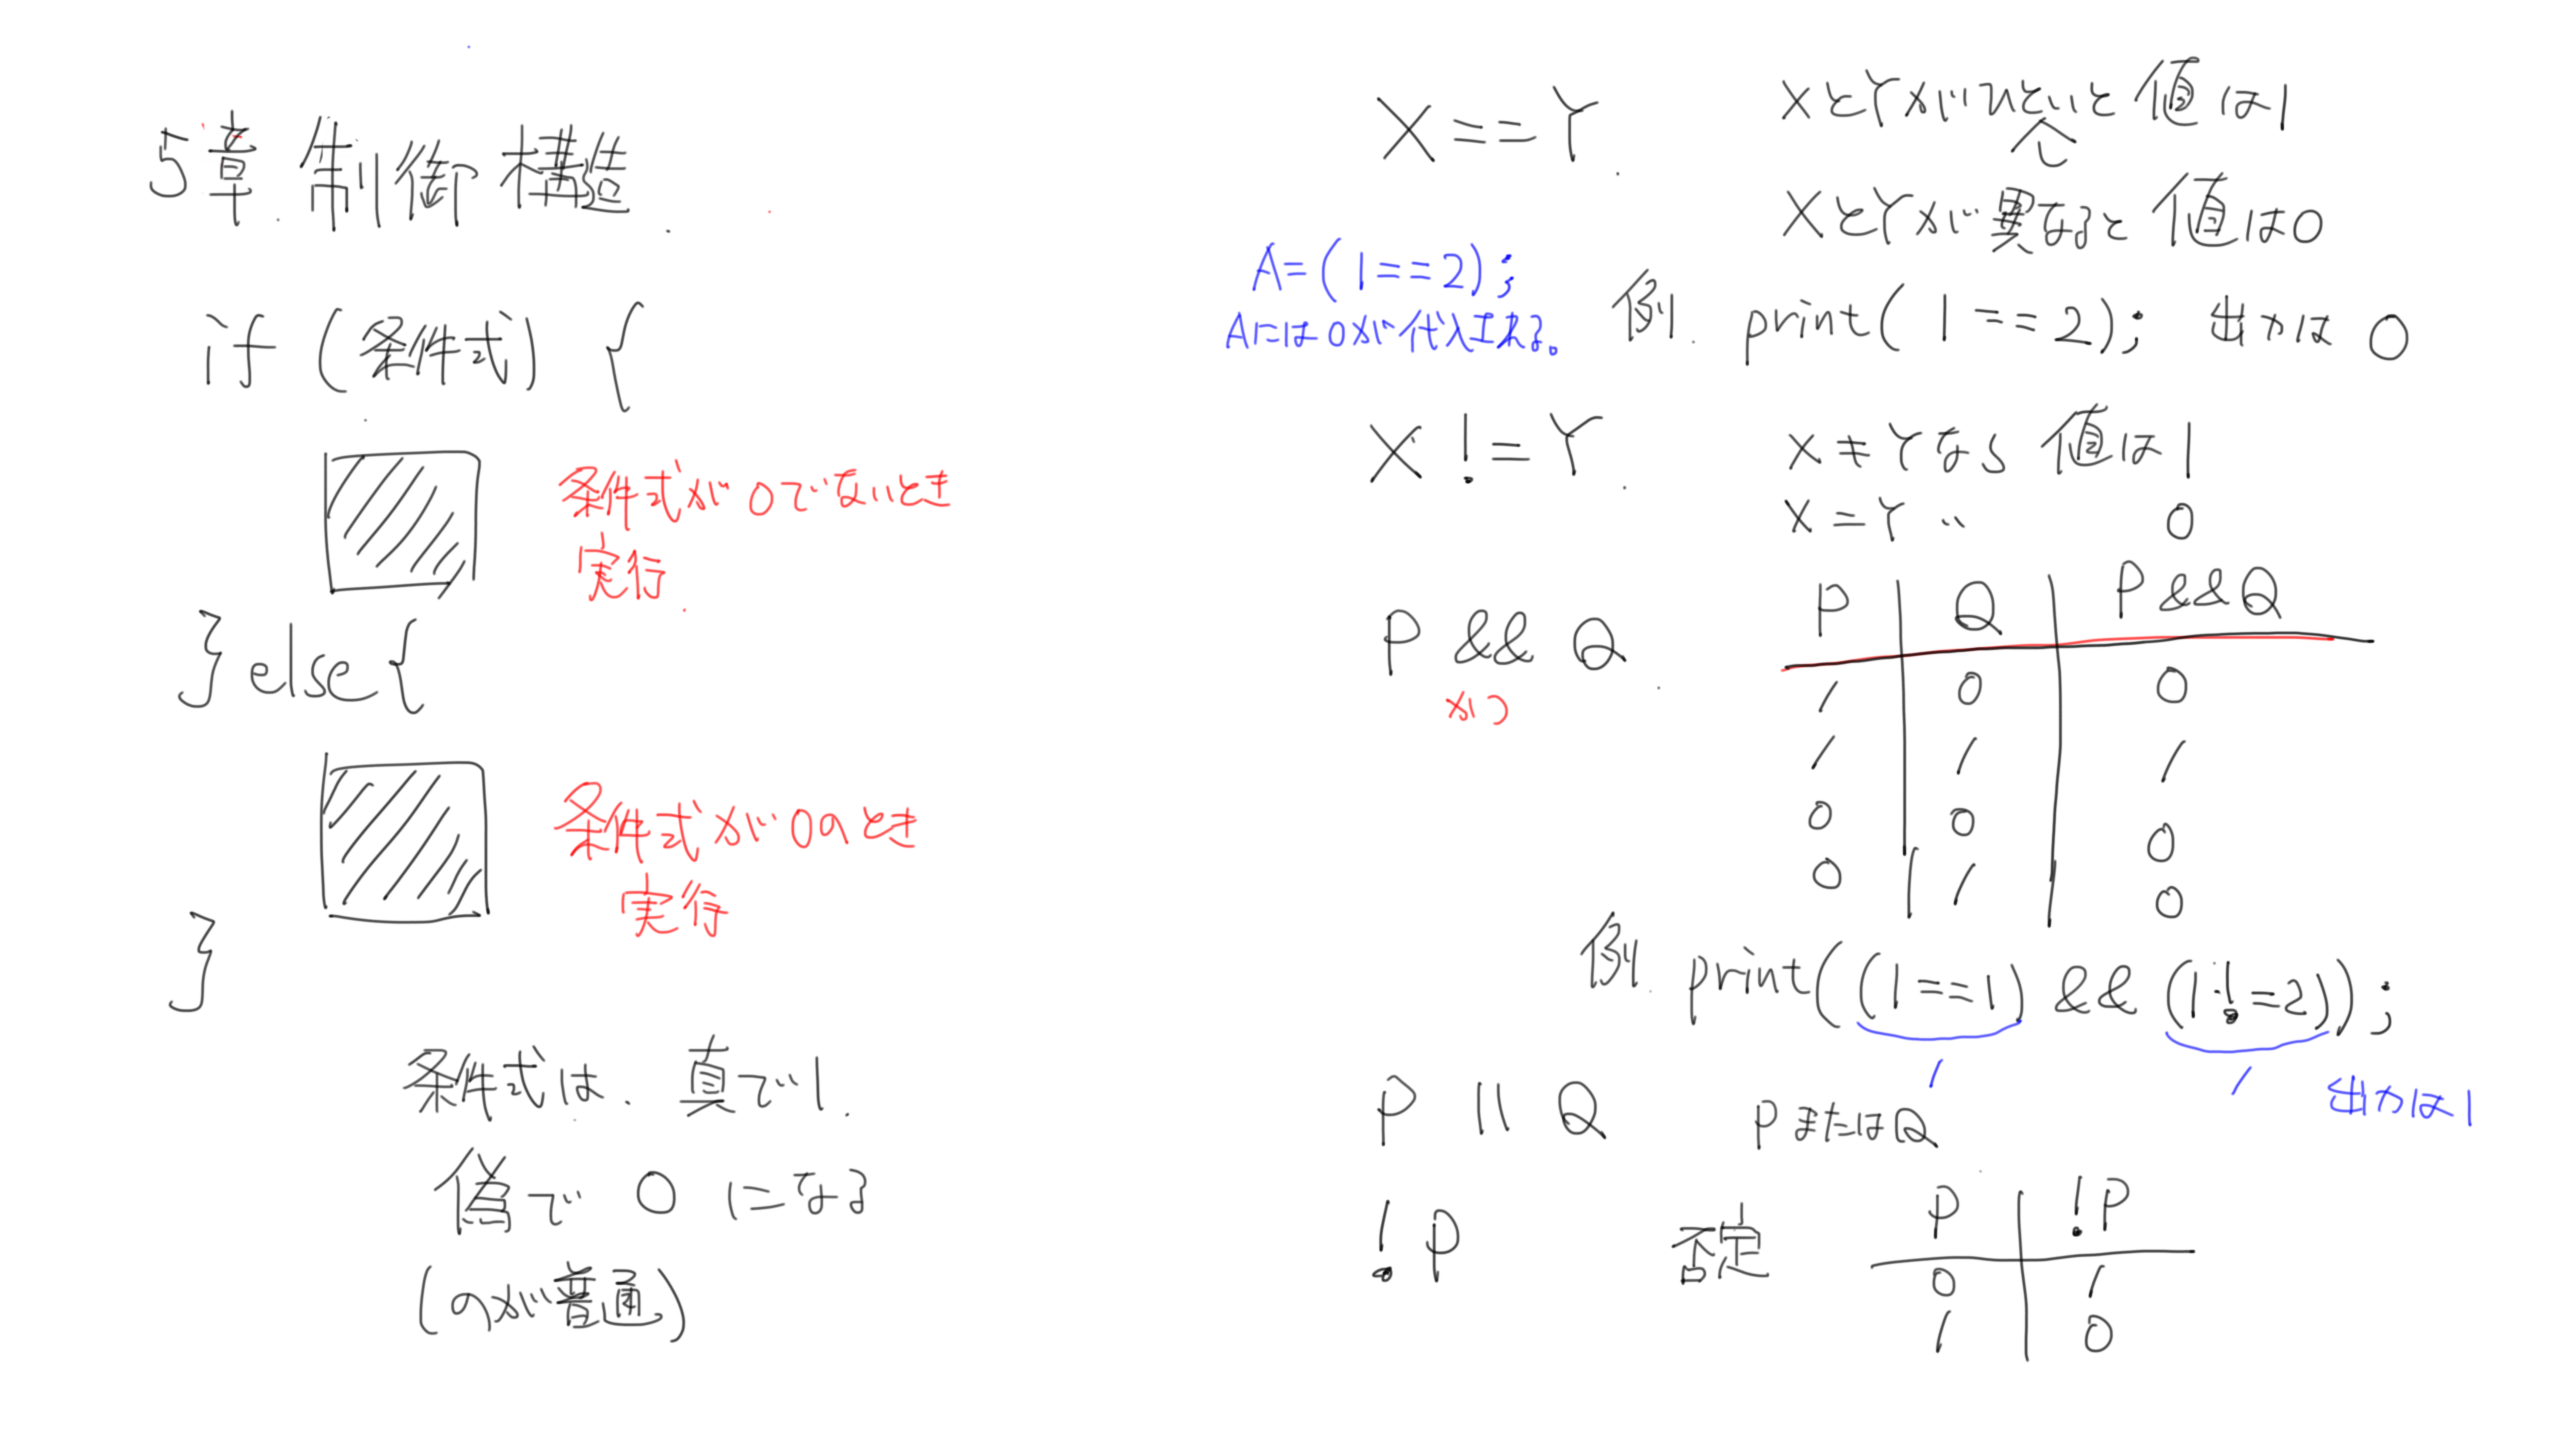 5章 制御構造
if (条件式) {
条件式が0でないとき
実行
} else {
条件式が0のとき
実行
}
条件式は、真で1.
偽で 0 になる
(のが普通)
X == Y
XとYがひとしいと 値は1
XとYが異なると 値は0
A=(1==2);
Aには0が代入される。
例. print( 1 == 2); 出力は 0
X != Y
X ≠ Yなら 値は1
X = Y 〃 0
P && Q
かつ
P Q P&&Q
1 0 0
1 1 1
0 0 0
0 1 0
例. print((1==1) && (1!=2));
1 1 出力は1
P || Q PまたはQ
!P 否定
P !P
0 1
1 0